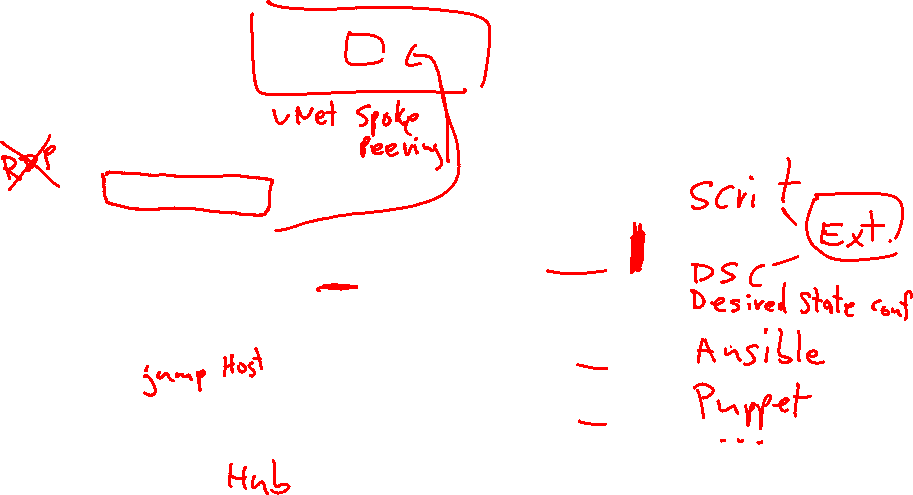 vNet Spoke
Peering
RDP
Scrit
Ext.
DSC
Desired State conf
Ansible
jump Host
Puppet
...
Hub